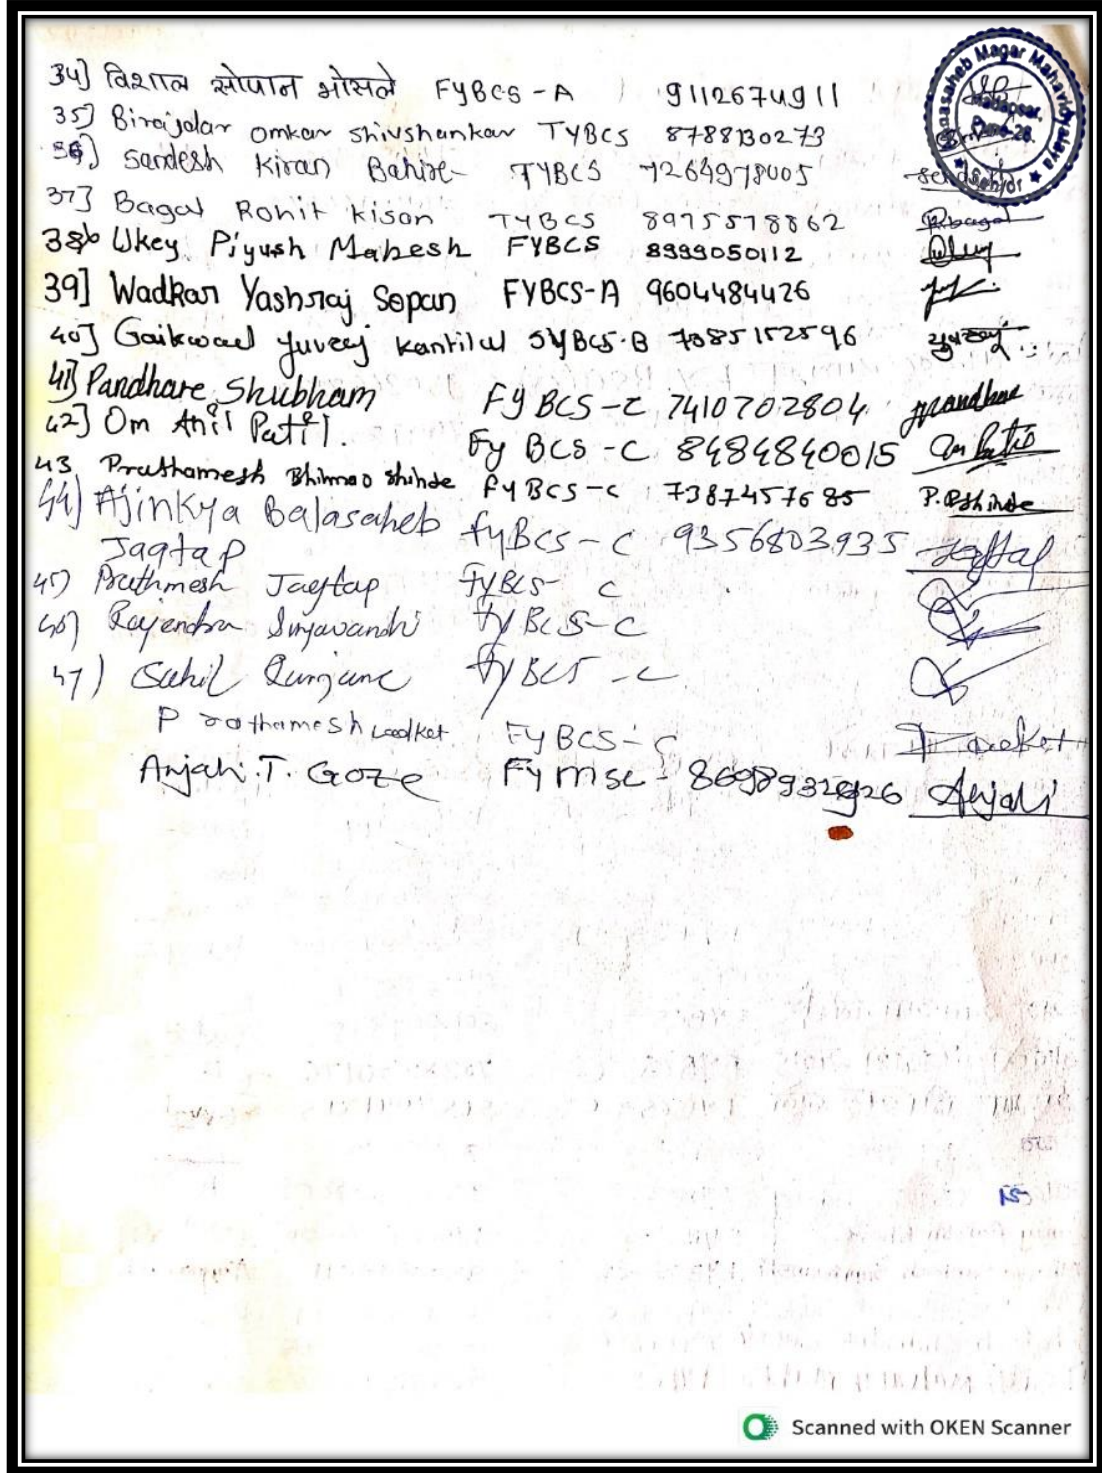 34] विशाल सोपान भोसले FYBCS-A 9112674911
35] Birajdar Omkar Shivshankar TYBCS 8788130273
36] Sandesh Kiran Bahire TYBCS 7264978005
37] Bagal Rohit Kison TYBCS 8975578862 Rbagal
38] Ukey Piyush Mahesh FYBCS 8999050112
39] Wadkar Yashraj Sopan FYBCS-A 9604484426
40] Gaikwad Yuvraj Kantilal SYBCS-B
41] Pandhare Shubham FYBCS-C 7410702804
42] Om Anil Patil. FyBCS-C 8484840015 Om Patil
43 Prathamesh Bhimrao Shinde FyBCS-C 7387457685 P.B Shinde
44) Ajinkya Balasaheb FyBCS-C 9356803935 Jagtap
Jagtap
45) Prathmesh Jagtap FyBCS-C
46) Rajendra Suryavanshi FyBCS-C
47) Sahil FyBCS-C
Prathamesh FYBCS-C
Anjali.T. Goze FYMSC- Anjali
Magar Mahavidyalaya
Hadapsar,
Scanned with OKEN Scanner